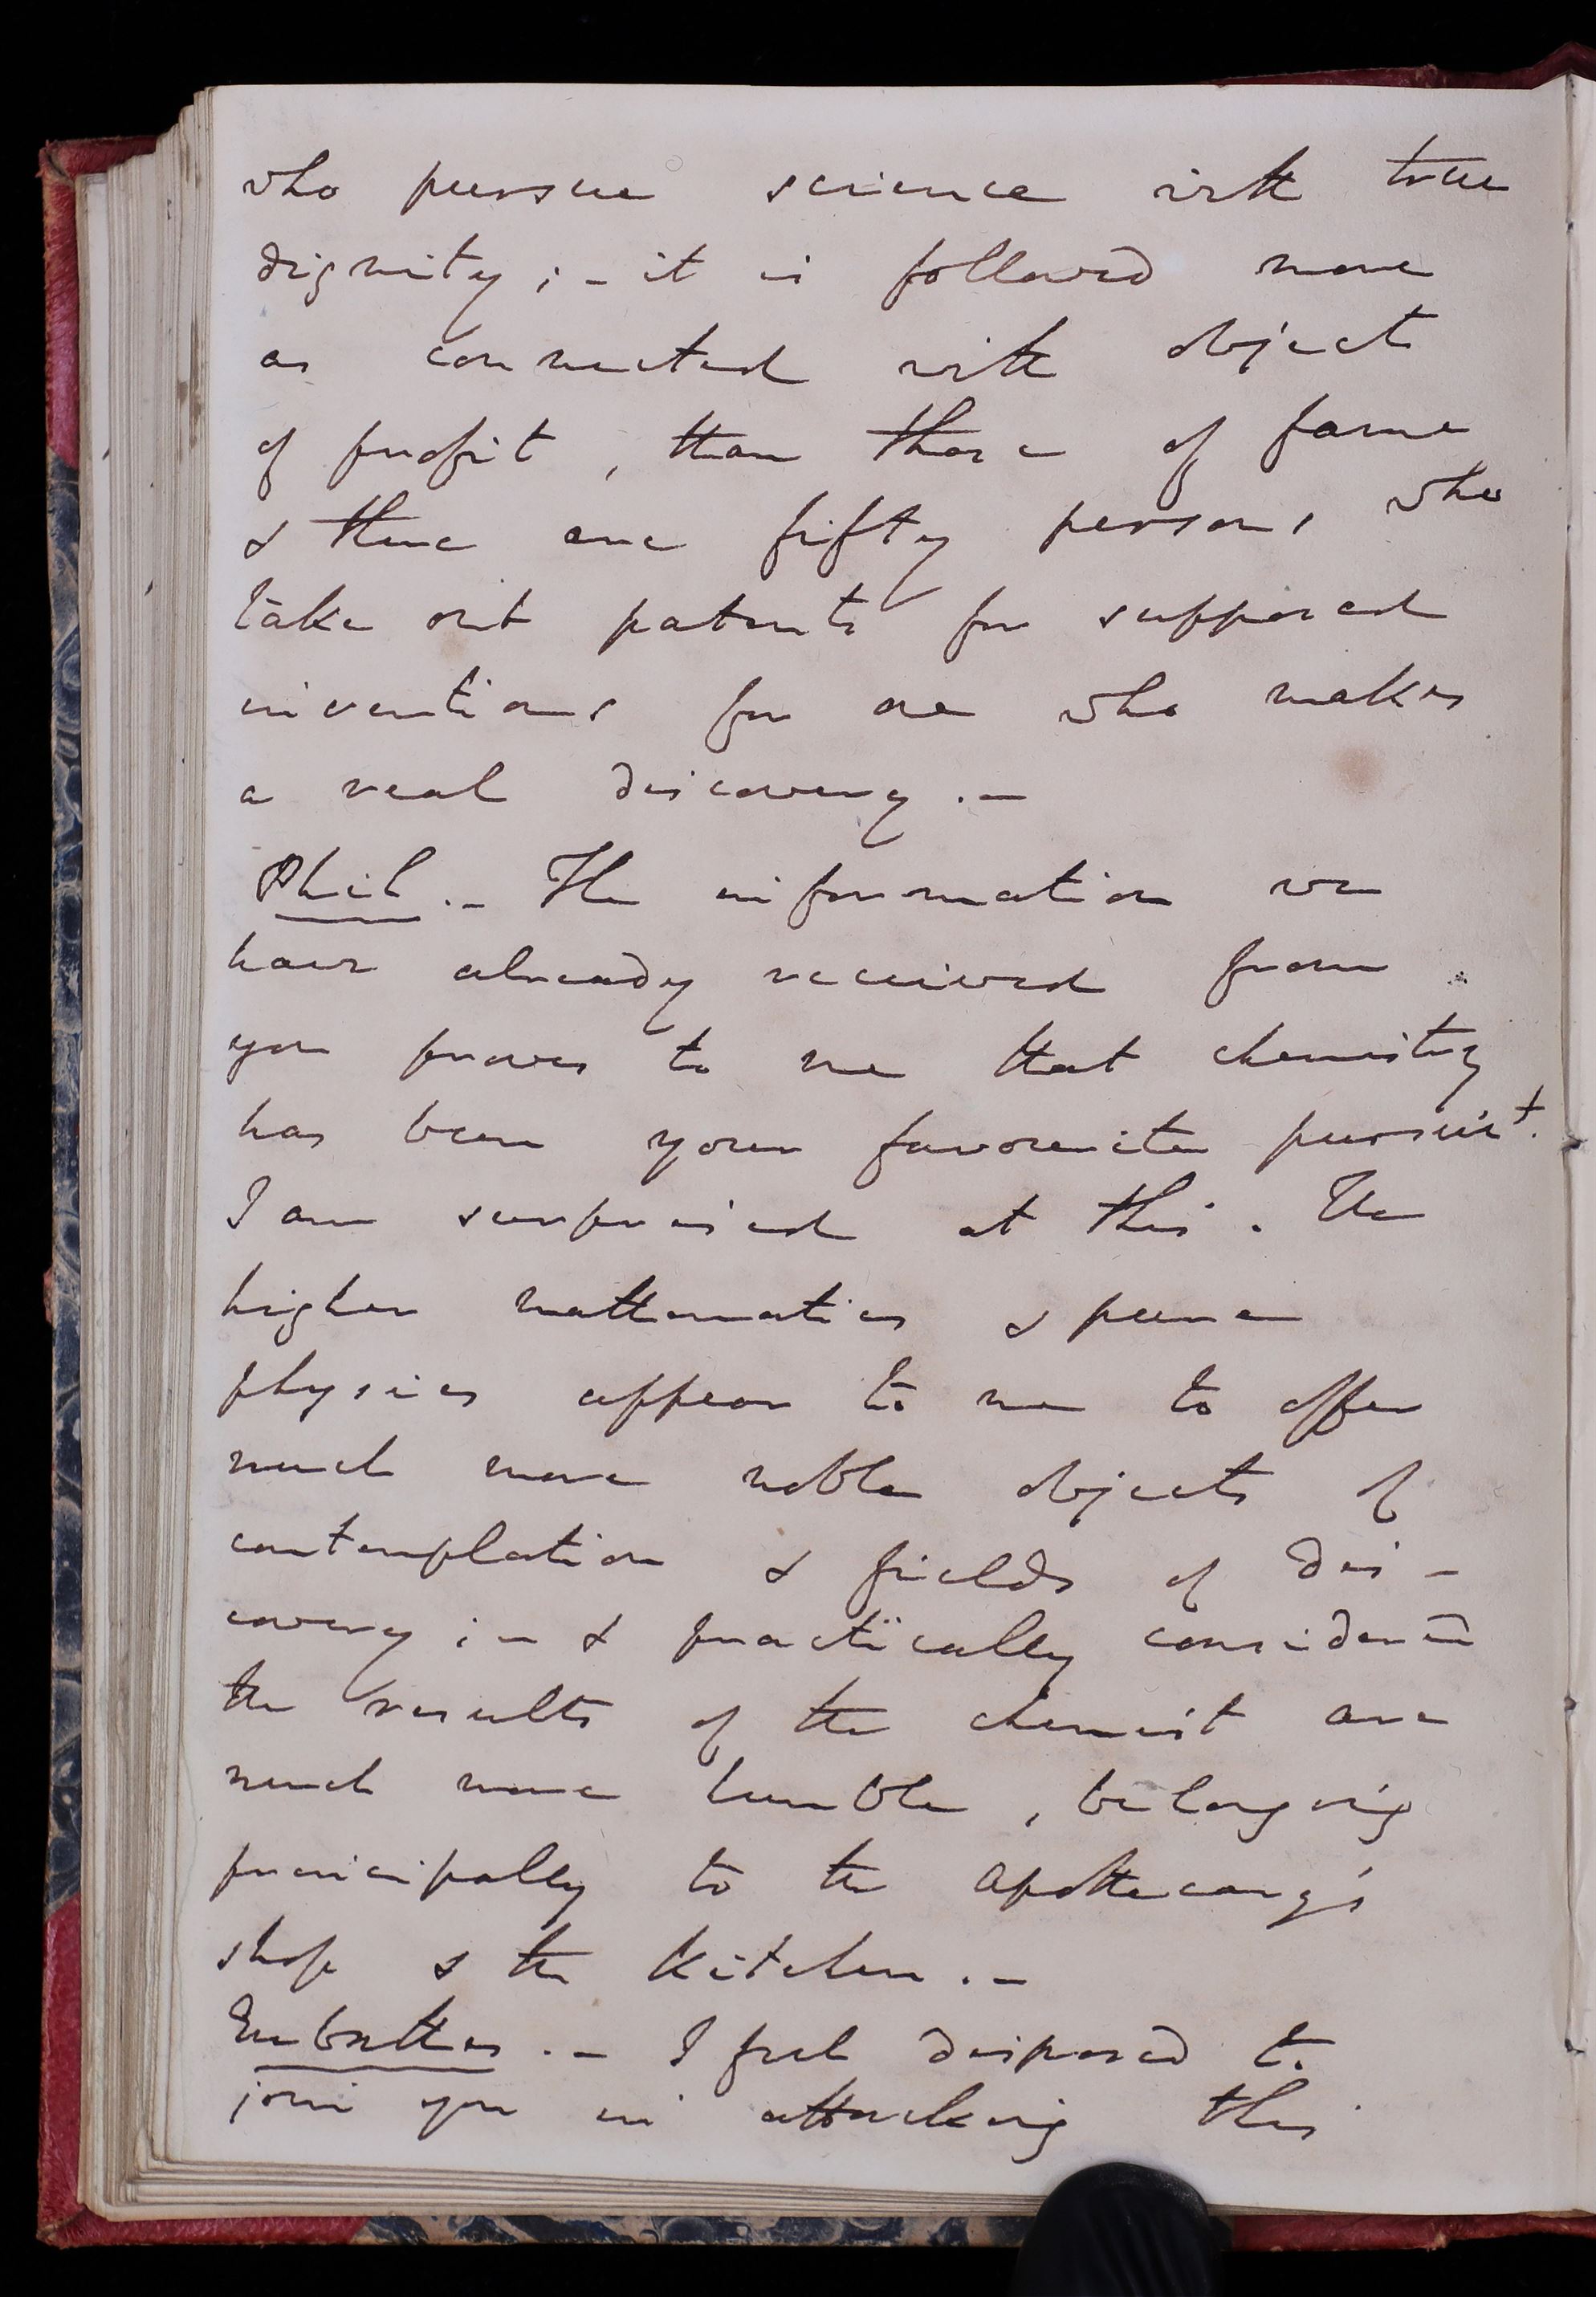 who pursue science with true
dignity; - it is followed more
as connected with objects
of profit, than those of fame
& there are fifty persons who
take out patents for supposed
inventions for one who makes
a real discovery. -
Phil. - The information we
have already received from
you proves to me that chemistry
has been your favoureite pursuit.
I am surprised at this. The
higher mathematics & pure
physics appear to me to offer
much more noble objects of
contemplation & fields of dis -
covery; - & practically considered
the results of the chemist are
much more humble, belonging
principally to the apothecary's
shop & the kitchen. -
Eubathes. - I feel disposed to
join you in attacking this